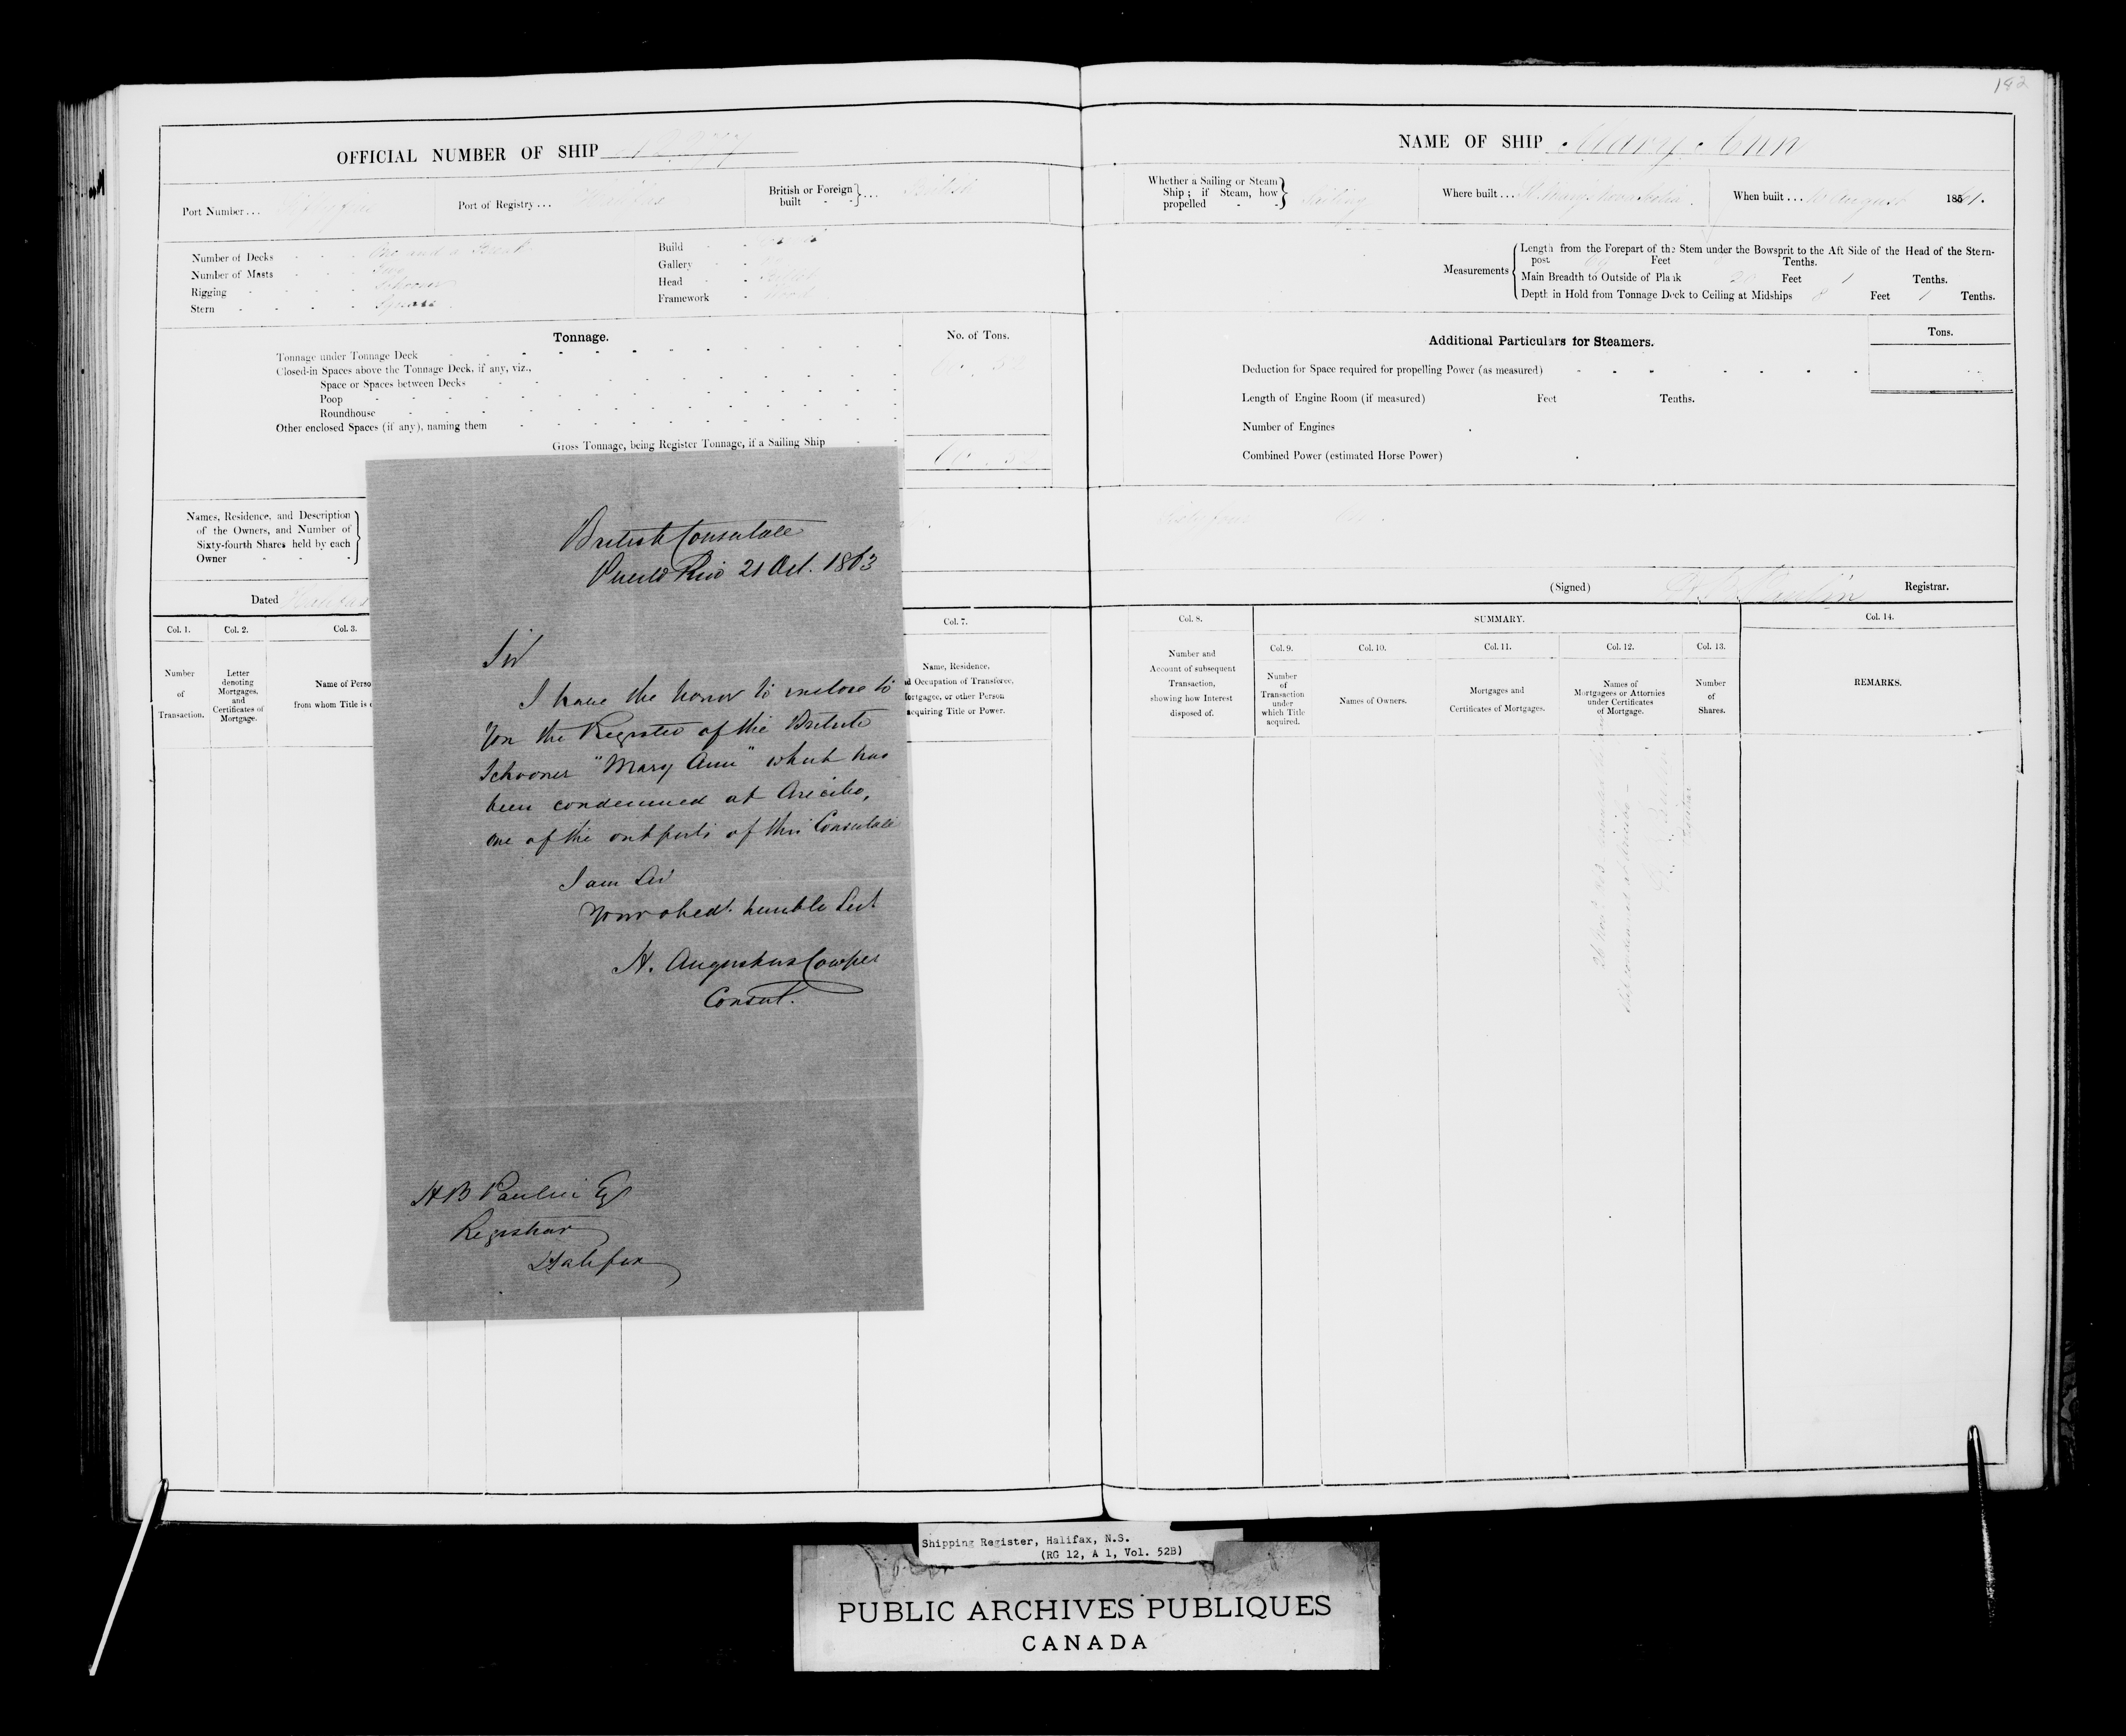 182
OFFICIAL NUMBER OF SHIP
Port Number...
Port of Registry... Halifax
British or Foreign built ... British
Number of Decks - - - One and a Break
Number of Masts - - - Two
Rigging - - - - Schooner
Stern - - - - Square
Build - -
Gallery - -
Head - -
Framework - Wood
Tonnage.
No. of Tons.
Tonnage under Tonnage Deck
Closed-in Spaces above the Tonnage Deck, if any, viz.,
Space or Spaces between Decks
Poop
Roundhouse
Other enclosed Spaces (if any), naming them
Gross Tonnage, being Register Tonnage, if a Sailing Ship
Names, Residence, and Description
of the Owners, and Number of
Sixty-fourth Shares held by each
Owner
Dated Halifax
Col. 1.
Number
of
Transaction.
Col. 2.
Letter
denoting
Mortgages,
and
Certificates of
Mortgage.
Col. 3.
Name of Perso
from whom Title is
Col. 7.
Name, Residence,
d Occupation of Transferee,
ortgagee, or other Person
acquiring Title or Power.
British Consulate
Puerto Rico 21 Oct. 1863
Sir
I have the honor to inclose to
You the Register of the British
Schooner "Mary Ann" which has
been condemned at Arecibo,
one of the outports of this Consulate
I am Sir
Your obedt. humble Sert
H. Augustus Cowper
Consul.
H B Paulin Esq
Registrar
Halifax
NAME OF SHIP Mary Ann
Whether a Sailing or Steam
Ship; if Steam, how
propelled - - Sailing
Where built... St. Marys Nova Scotia.
When built... August 1861.
Measurements
Length from the Forepart of the Stem under the Bowsprit to the Aft Side of the Head of the Stern-
post Feet Tenths.
Main Breadth to Outside of Plank 20 Feet 1 Tenths.
Depth in Hold from Tonnage Deck to Ceiling at Midships 8 Feet 1 Tenths.
Additional Particulars for Steamers.
Tons.
Deduction for Space required for propelling Power (as measured)
Length of Engine Room (if measured) Feet Tenths.
Number of Engines
Combined Power (estimated Horse Power)
Sixty four
(Signed) H. B. Paulin Registrar.
Col. 8.
Number and
Account of subsequent
Transaction,
showing how Interest
disposed of.
SUMMARY.
Col. 9.
Number
of
Transaction
under
which Title
acquired.
Col. 10.
Names of Owners.
Col. 11.
Mortgages and
Certificates of Mortgages.
Col. 12.
Names of
Mortgagees or Attornies
under Certificates
of Mortgage.
Col. 13.
Number
of
Shares.
Col. 14.
REMARKS.
condemned at Arecibo
Shipping Register, Halifax, N.S.
(RG 12, A 1, Vol. 52B)
PUBLIC ARCHIVES PUBLIQUES
CANADA